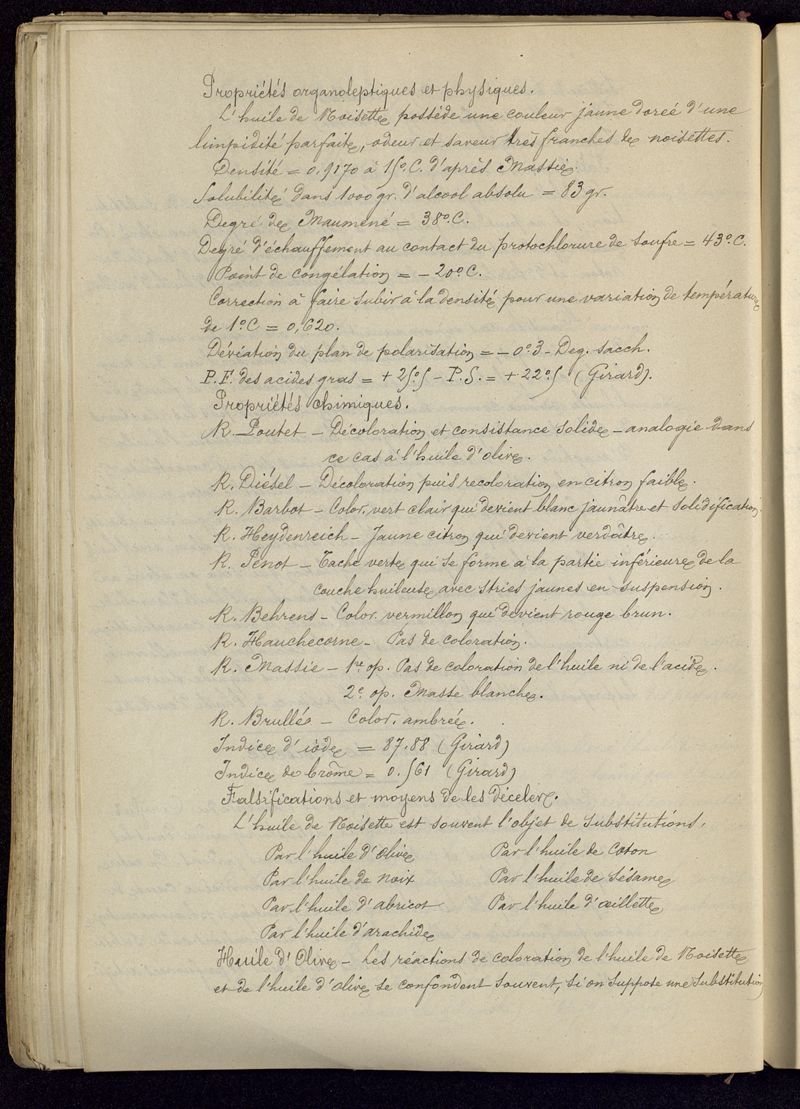 Propriétés organoleptiques et physiques.
L'huile de Noisette possède une couleur jaune dorée d'une
limpidité parfaite, odeur et saveur très franches de noisettes.
Densité = 0.9170 à 15°C. d'après Massie.
Solubilité dans 1000 gr. d'alcool absolu = 83 gr.
Degré de Maumené = 38°C.
Degré d'échauffement au contact du protochlorure de soufre = 43°C.
Point de congélation = - 20°C.
Correction à faire subir à la densité pour une variation de température
de 1°C = 0,620.
Déviation du plan de polarisation = - 0°3 - Deg. sacch.
P.F. des acides gras = + 25°5 - P.S. = + 22°5 (Girard).
Propriétés chimiques.
R. Poutet - Décoloration et consistance solide - analogie dans
ce cas à l'huile d'olive.
R. Diésel - Décoloration puis recoloration en citron faible.
R. Barbot - Color. vert clair qui devient blanc jaunâtre et solidification.
R. Heydenreich - Jaune citron qui devient verdâtre.
R. Penot - Tache verte qui se forme à la partie inférieure de la
couche huileuse avec stries jaunes en suspension.
R. Behrens - Color. vermillon qui devient rouge brun.
R. Hauchecorne - Pas de coloration.
R. Massie - 1re op. Pas de coloration de l'huile ni de l'acide.
2e op. Masse blanche.
R. Brullé - Color. ambrée.
Indice d'iode = 87.88 (Girard)
Indice de brôme = 0.561 (Girard)
Falsifications et moyens de les déceler.
L'huile de Noisette est souvent l'objet de substitutions,
Par l'huile d'Olive Par l'huile de Coton
Par l'huile de Noix Par l'huile de Sésame
Par l'huile d'abricot Par l'huile d'œillette
Par l'huile d'arachide
Huile d'Olive - Les réactions de coloration de l'huile de Noisette
et de l'huile d'olive se confondent souvent, si on suppose une substitution